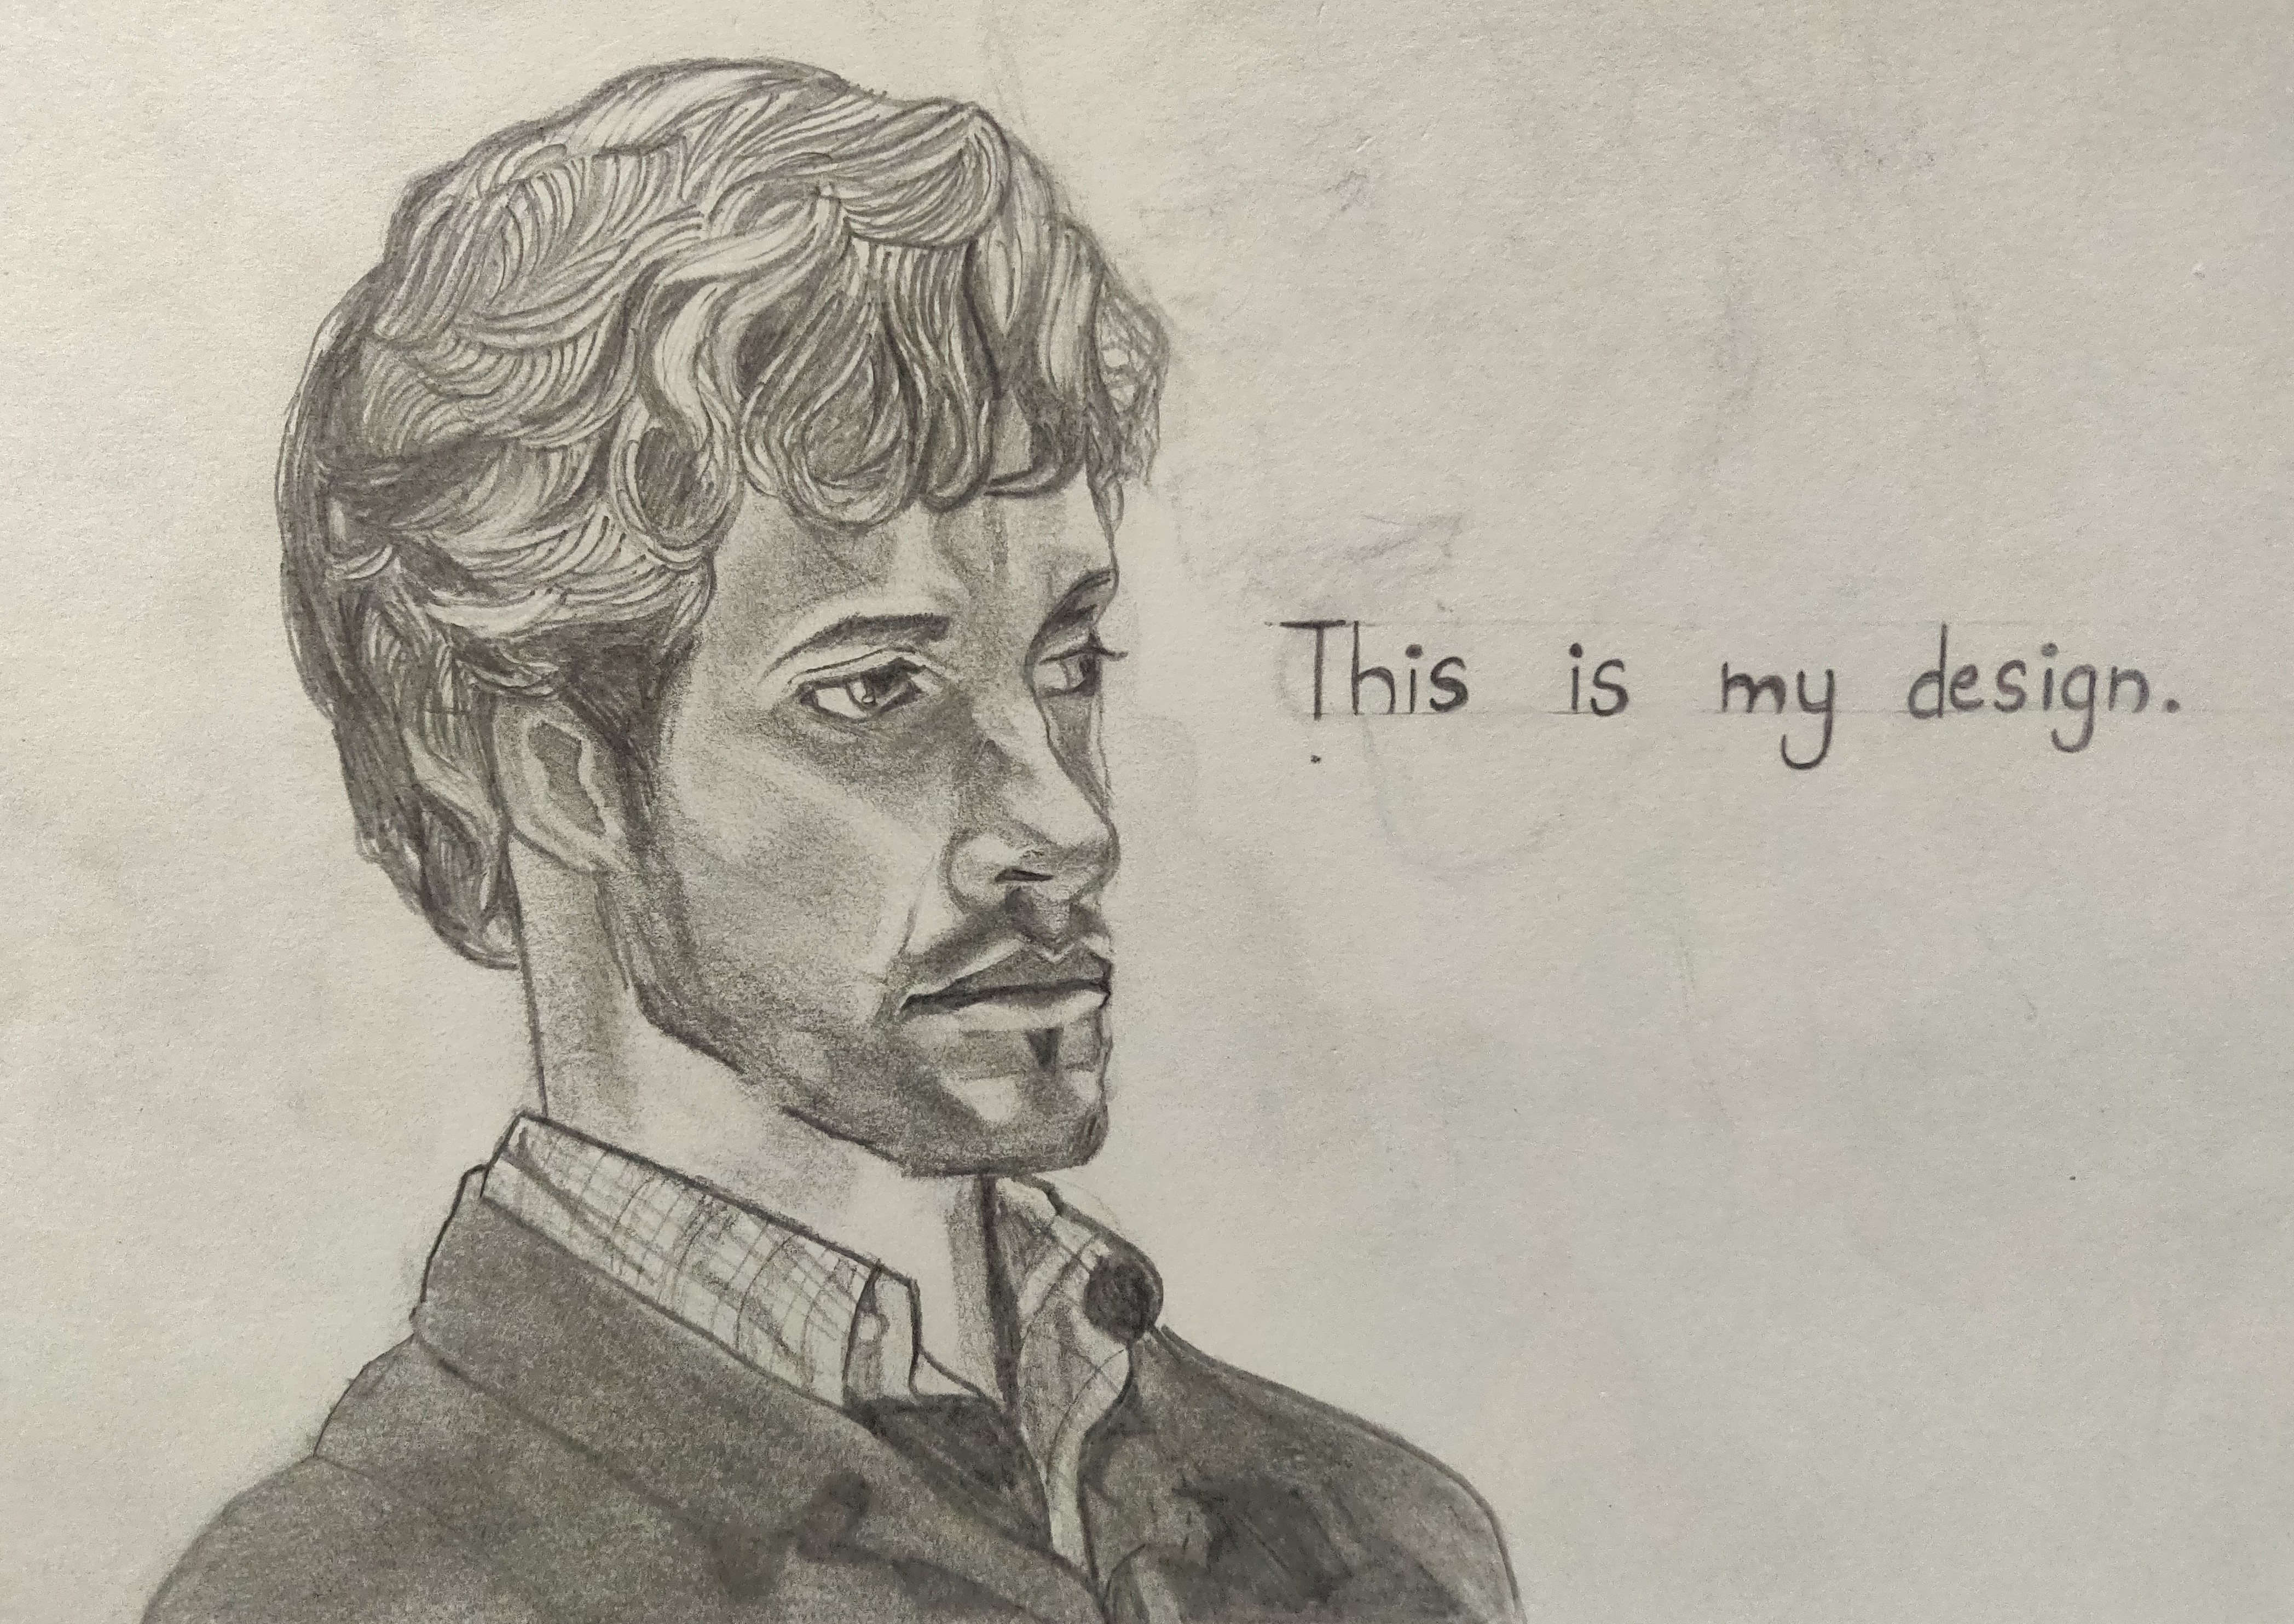 This is my design.